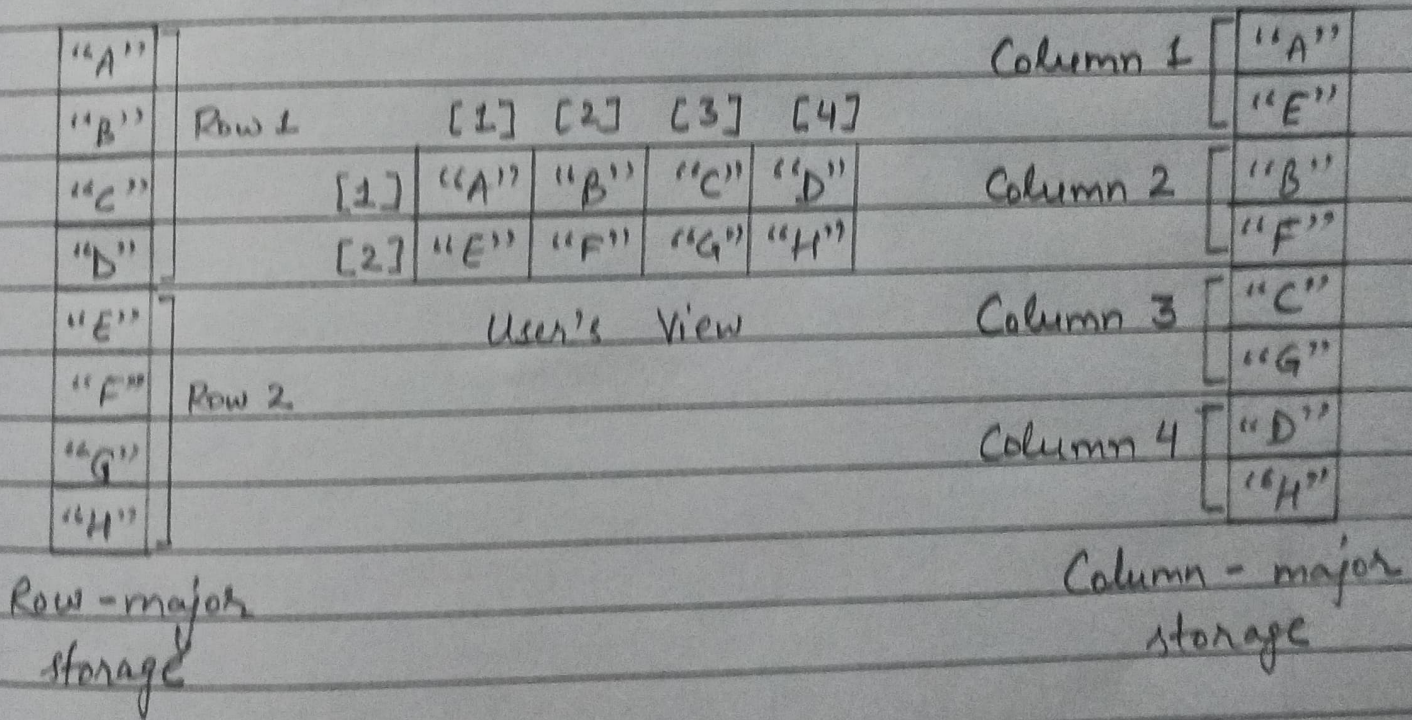 “A”
“B”
“C”
“D”
“E”
“F”
“G”
“H”
Row 1
Row 2
Row-major
storage
[1] [2] [3] [4]
[1] “A” “B” “C” “D”
[2] “E” “F” “G” “H”
User's View
Column 1 “A”
“E”
Column 2 “B”
“F”
Column 3 “C”
“G”
Column 4 “D”
“H”
Column - major
storage